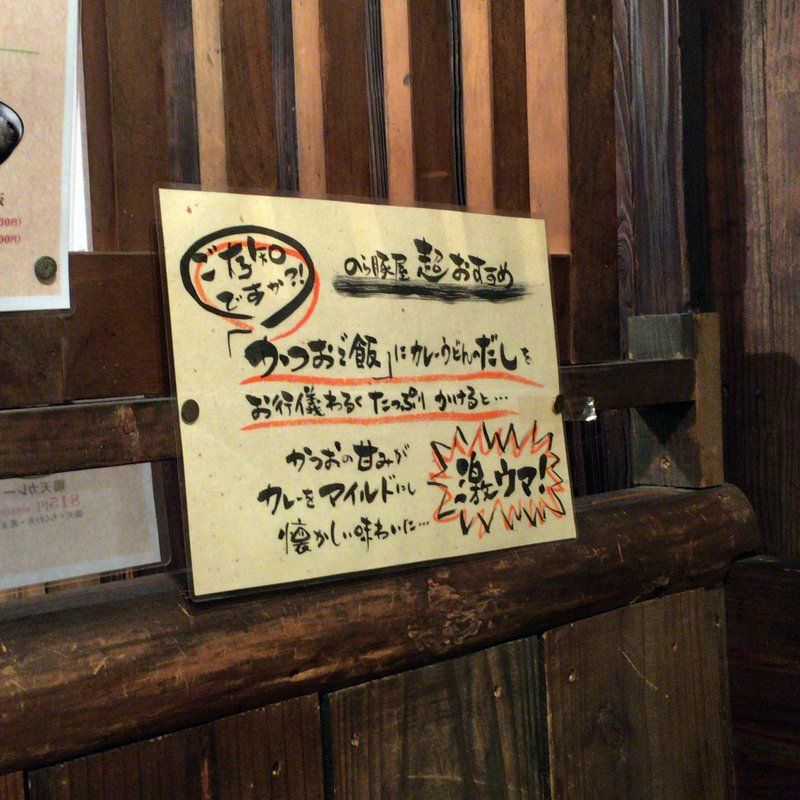 ご存知
ですか?!
のら豚屋 超おすすめ
「かつおご飯」にカレーうどんのだしを
お行儀わるく たっぷり かけると…
かつおの甘みが
カレーをマイルドにし
懐かしい味わいに…
激ウマ!
鶏天カレー
815円